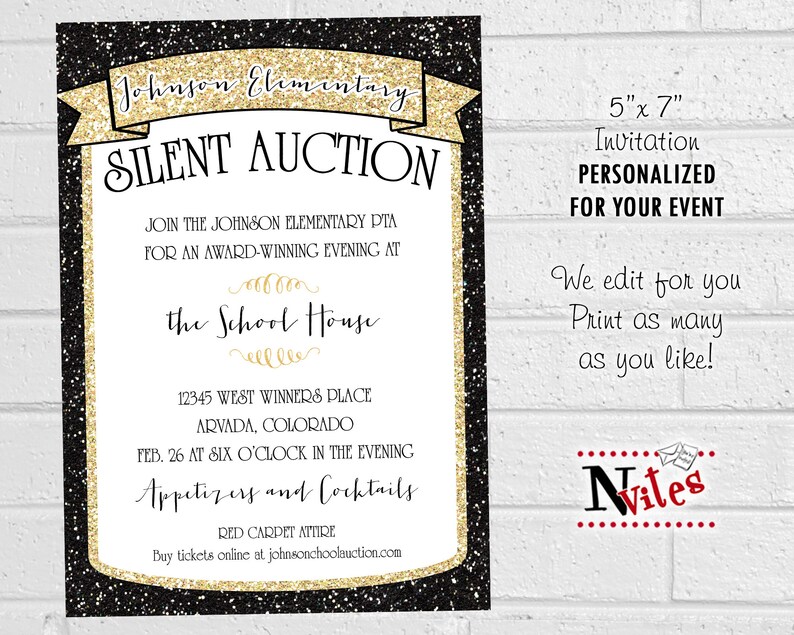 Johnson Elementary
SILENT AUCTION
JOIN THE JOHNSON ELEMENTARY PTA
FOR AN AWARD-WINNING EVENING AT
the School House
12345 WEST WINNERS PLACE
ARVADA, COLORADO
FEB. 26 AT SIX O'CLOCK IN THE EVENING
Appetizers and Cocktails
RED CARPET ATTIRE
Buy tickets online at johnsonchoolauction.com
5"x 7"
Invitation
PERSONALIZED
FOR YOUR EVENT
We edit for you
Print as many
as you like!
NVites